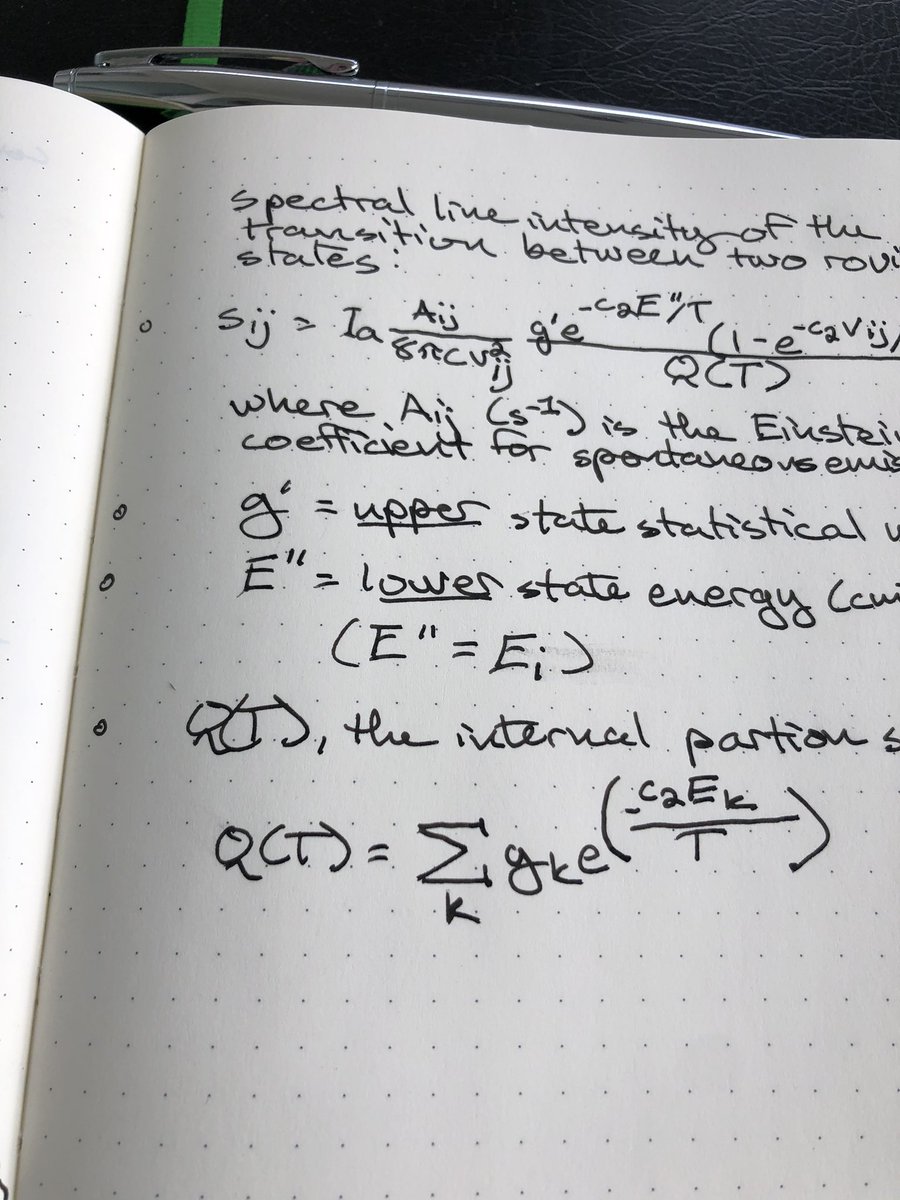 spectral line intensity of the
transition between two rovi
states:
Sij = Ia Aij/8πcν²ij g'e^-c₂E"/T (1-e^-c₂νij/ / Q(T)
where Aij (s⁻¹) is the Einstein
coefficient for spontaneous emis
g' = upper state statistical w
E" = lower state energy (cm
(E" = Ei)
Q(T), the internal partion s
Q(T) = Σk gke^(-c₂Ek/T)